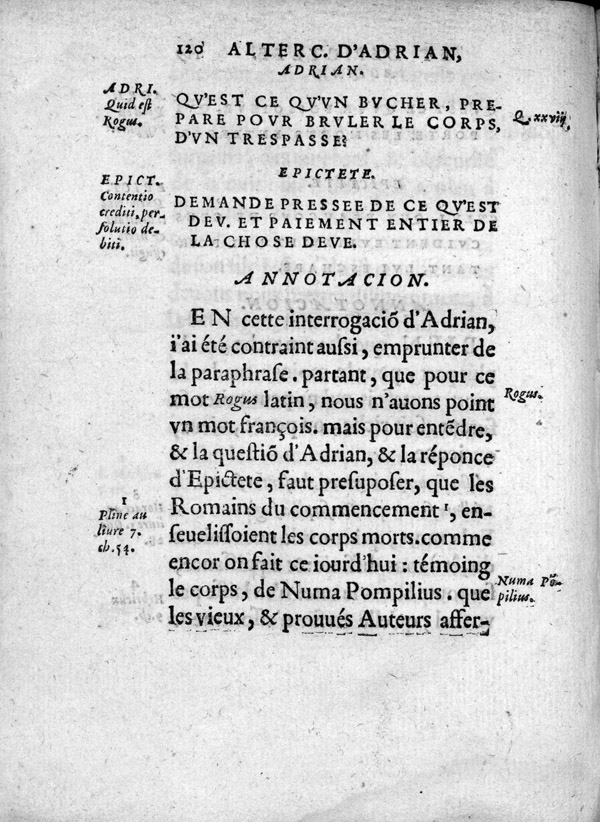 120 ALTERC. D'ADRIAN,
ADRIAN.
ADRI.
Quid est
Rogus.
QV'EST CE QV'VN BVCHER, PRE-
PARE POVR BRVLER LE CORPS,
D'VN TRESPASSE?
Q. xxviij,
EPICTETE.
EPICT.
Contentio
crediti, per-
solutio de-
biti.
DEMANDE PRESSEE DE CE QV'EST
DEV. ET PAIEMENT ENTIER DE
LA CHOSE DEVE.
ANNOTACION.
EN cette interrogaciõ d'Adrian,
i'ai été contraint aussi, emprunter de
la paraphrase. partant, que pour ce
mot Rogus latin, nous n'auons point
vn mot françois. mais pour entẽdre,
& la questiõ d'Adrian, & la réponce
d'Epictete, faut presuposer, que les
Romains du commencement¹, en-
seuelissoient les corps morts. comme
encor on fait ce iourd'hui : témoing
le corps, de Numa Pompilius. que
les vieux, & prouués Auteurs affer-
Rogus.
1
Pline au
liure 7.
ch. 54.
Numa Põ-
pilius.